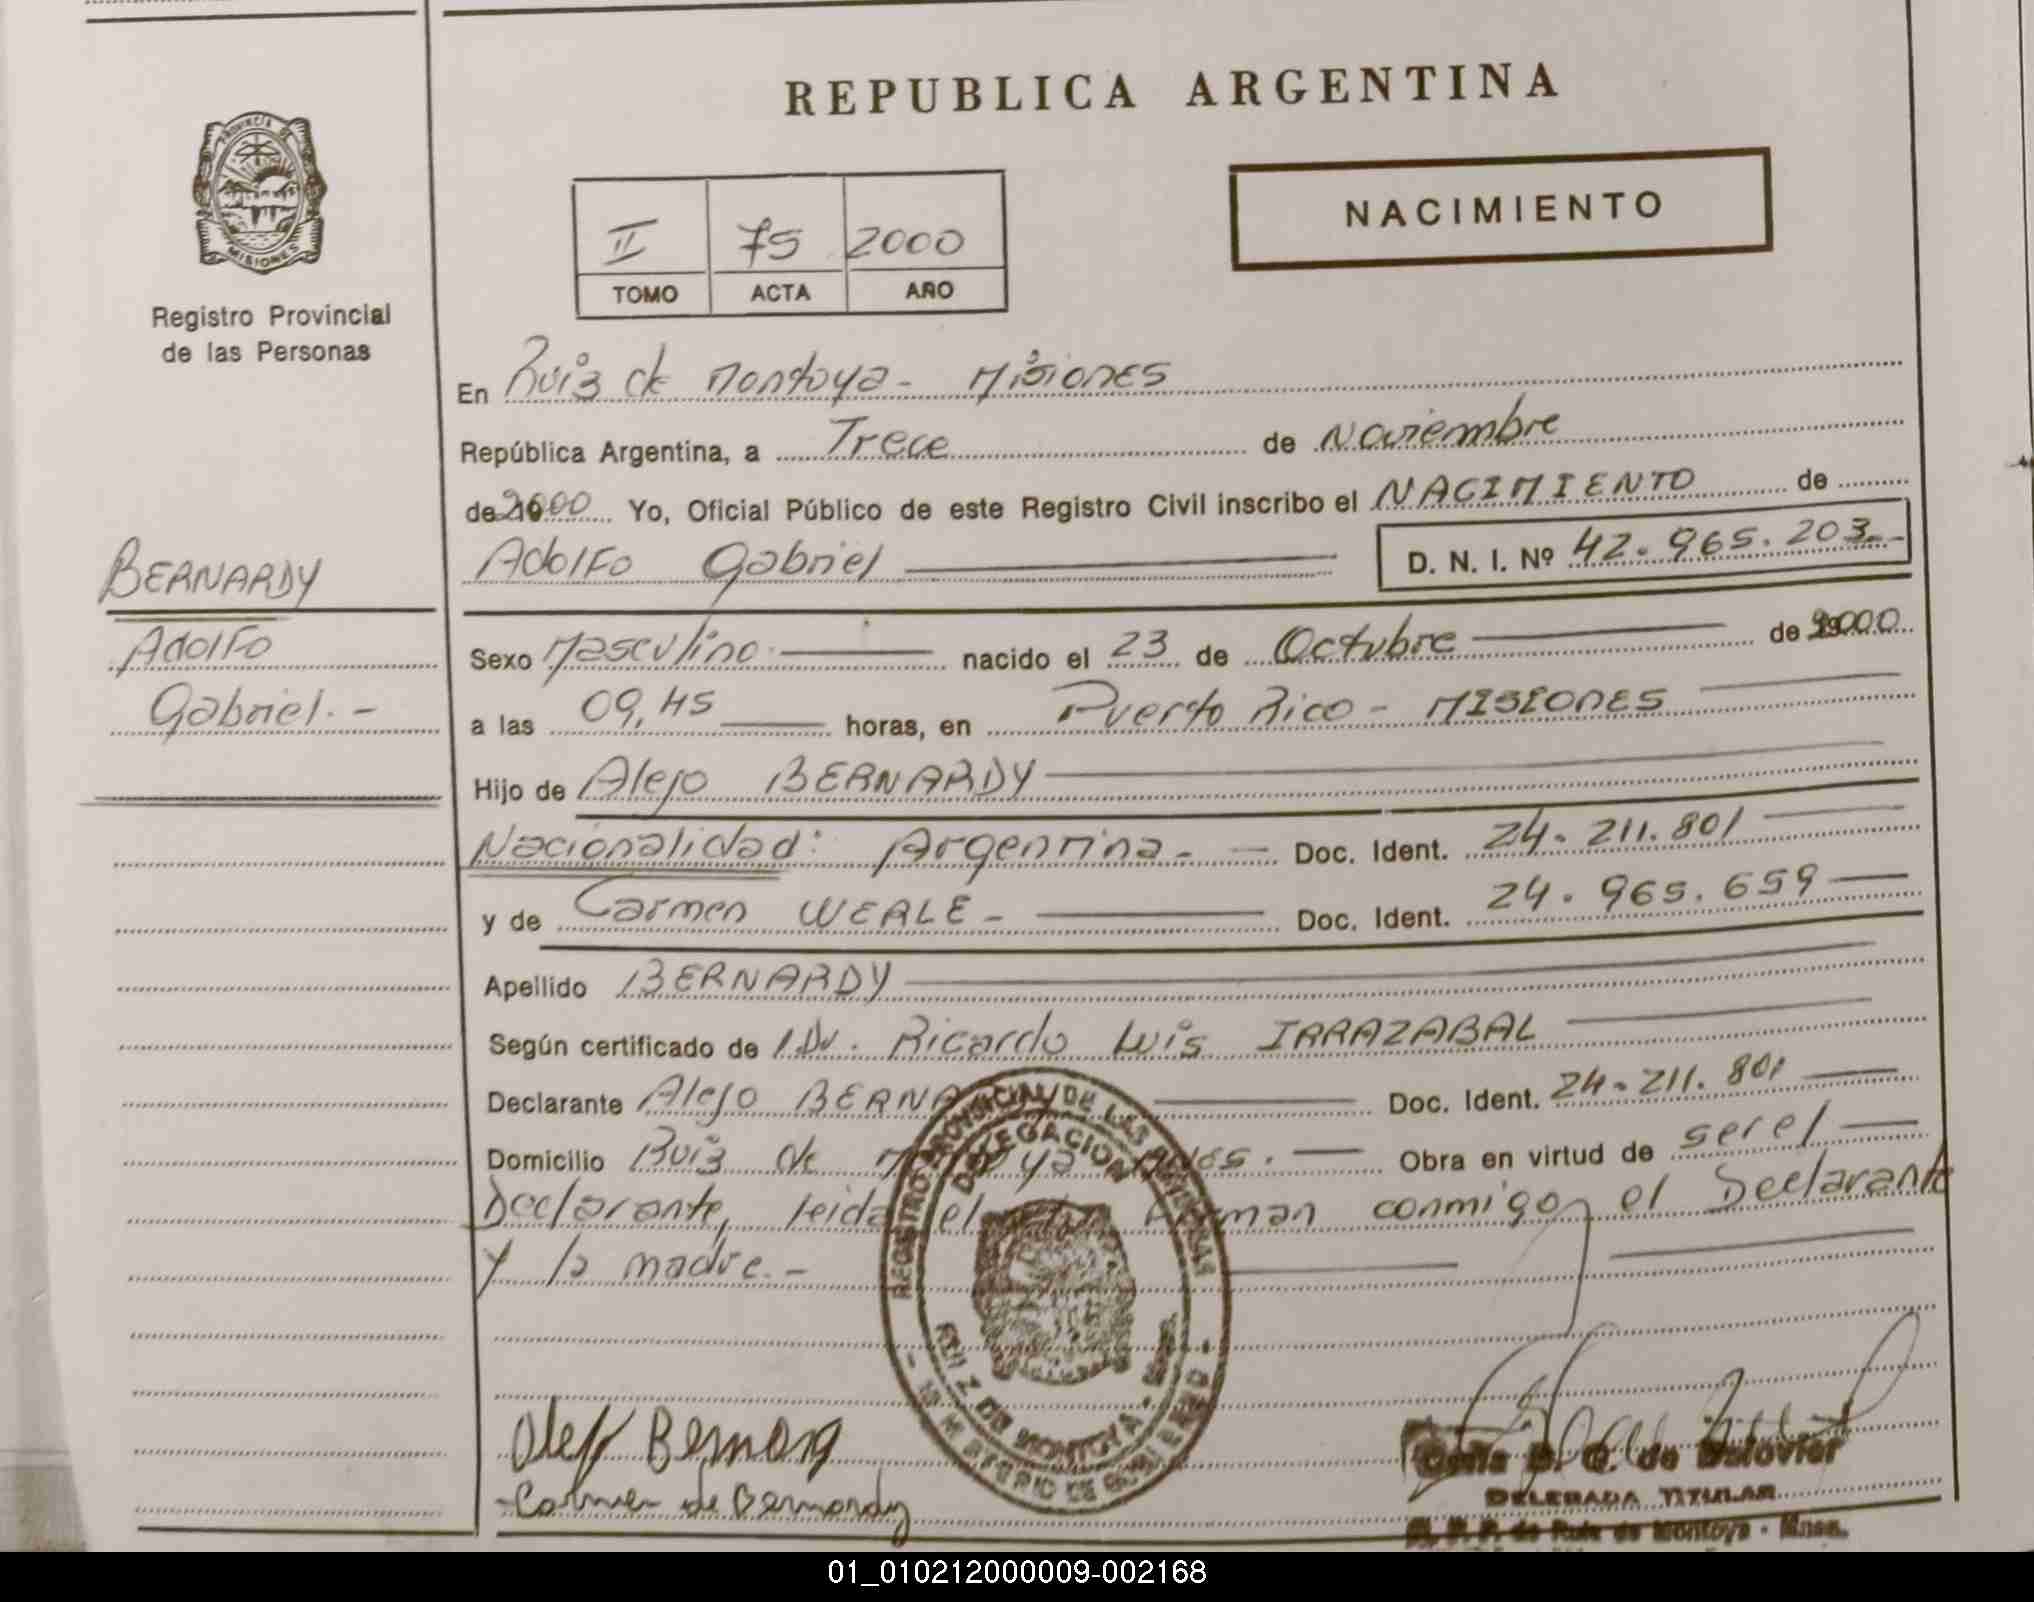 REPUBLICA ARGENTINA
PROVINCIA DE
MISIONES
Registro Provincial
de las Personas
II 75 2000
TOMO ACTA AÑO
NACIMIENTO
En Ruiz de Montoya - Misiones
República Argentina, a Trece de Noviembre
de 2000 Yo, Oficial Público de este Registro Civil inscribo el NACIMIENTO de
Adolfo Gabriel D. N. I. Nº 42.965.203.-
BERNARDY
Adolfo
Gabriel.-
Sexo Masculino nacido el 23 de Octubre de 2000
a las 09,45 horas, en Puerto Rico - MISIONES
Hijo de Alejo BERNARDY
Nacionalidad: Argentina.- Doc. Ident. 24.211.801
y de Carmen WERLE - Doc. Ident. 24.965.659
Apellido BERNARDY
Según certificado de Dr. Ricardo Luis IRRAZABAL
Declarante Alejo Doc. Ident. 24.211.801
Domicilio Ruiz de Obra en virtud de ser el
Declarante, leida el conmigo el Declarante
y la madre.-
REGISTRO PROVINCIAL DE LAS PERSONAS
DELEGACION
RUIZ DE MONTOYA
MINISTERIO DE GOBIERNO
Carmen de Bernardy
DELEGADA TITULAR
R. P. P. de Ruiz de Montoya - Mnes.
01_010212000009-002168